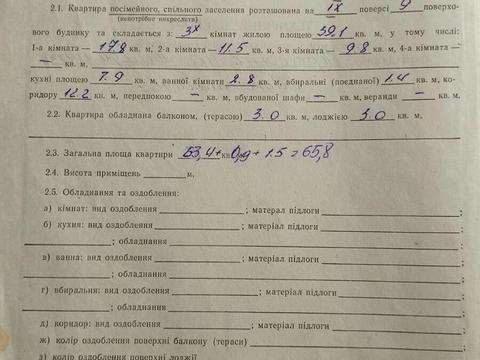 2.1. Квартира посімейного, спільного заселення розташована на IX поверсі 9 поверхо-
(непотрібне викреслити)
вого будинку та складається з: 3х кімнат жилою площею 39,1 кв. м, у тому числі:
1-а кімната — 17.8 кв. м, 2-а кімната — 11.5 кв. м, 3-я кімната — 9.8 кв. м, 4-а кімната —
— кв. м,
кухні площею 7.9 кв. м, ванної кімнати 2.8 кв. м, вбиральні (поєднаної) 1.4 кв. м, ко-
ридору 12.2 кв. м, передпокою — кв. м, вбудованої шафи — кв. м, веранди — кв. м,
2.2. Квартира обладнана балконом, (терасою) 3.0 кв. м, лоджією 3.0 кв. м.
2.3. Загальна площа квартири 63,4 + кв 0,9 + 1.5 = 65,8
2.4. Висота приміщень м.
2.5. Обладнання та оздоблення:
а) кімнат: вид оздоблення ; матерал підлоги ;
б) кухня: вид оздоблення ; матеріал підлоги
; обладнання ;
в) ванна: вид оздоблення ; матеріал підлоги
; обладнання ;
г) вбиральня: вид оздоблення ; матеріал підлоги
; обладнання ;
д) коридор: вид оздоблення ; матеріал підлоги ;
ж) колір оздоблення поверхні балкону (тераси) ;
з) колір оздоблення поверхні лоджії